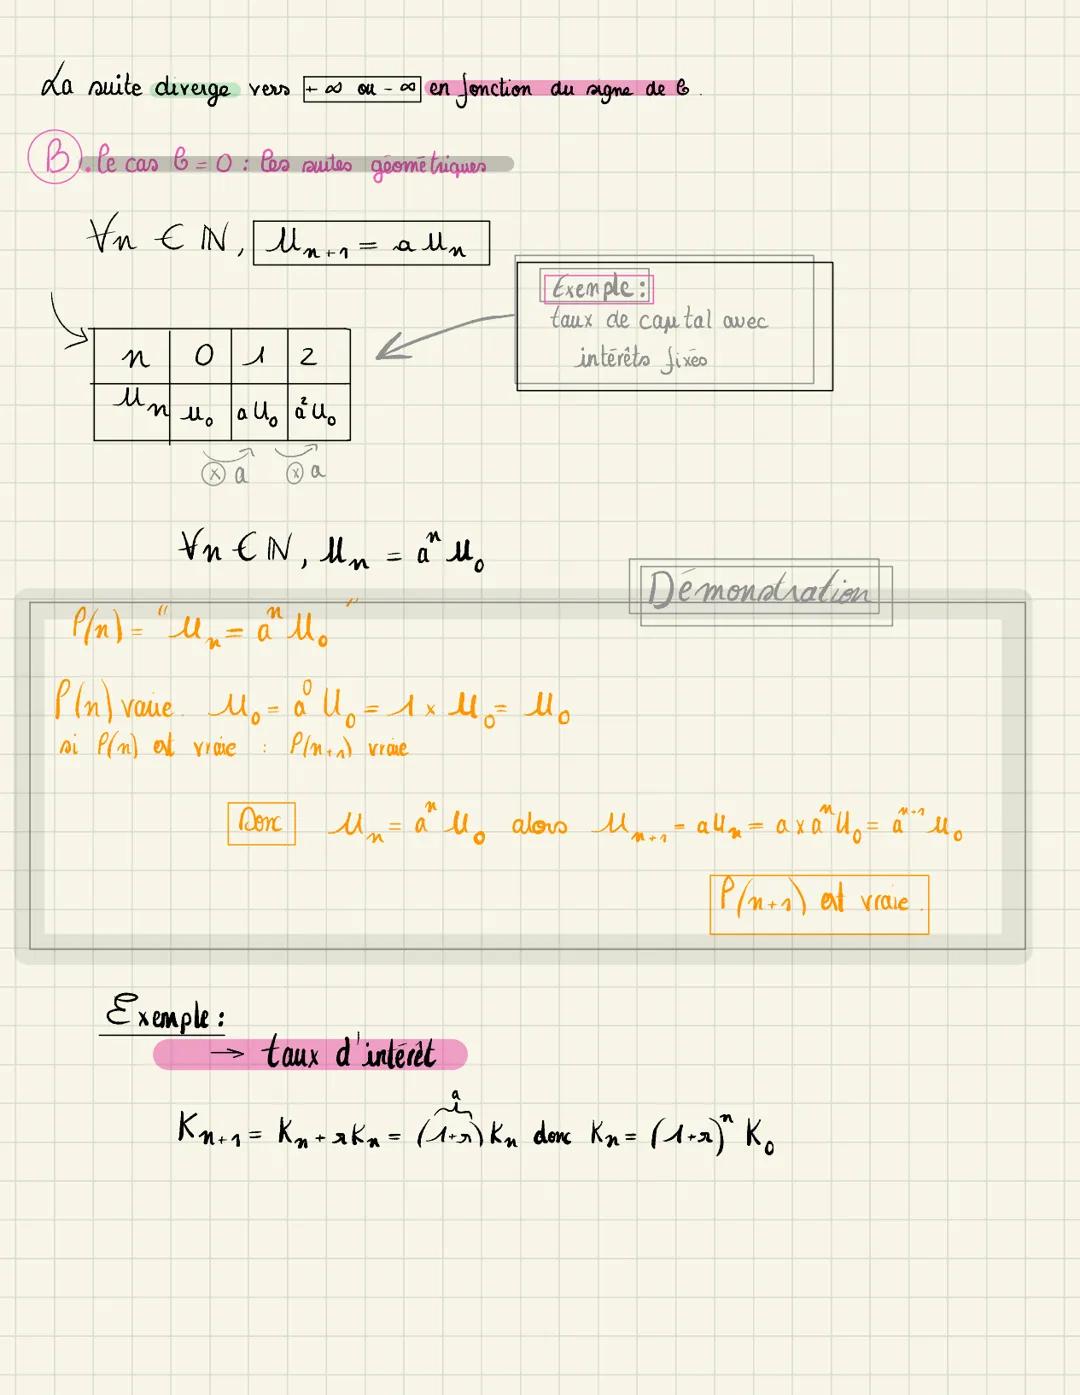 La suite diverge vers +∞ ou -∞ en fonction du signe de b.
B. le cas b = 0 : les suites géométriques
∀n ∈ ℕ, Uₙ₊₁ = a Uₙ
Exemple :
taux de capital avec
intérêts fixés
n 0 1 2
Uₙ U₀ aU₀ a²U₀
⊗ a ⊗ a
∀n ∈ ℕ, Uₙ = aⁿ U₀
Démonstration
P(n) = "Uₙ = aⁿ U₀"
P(n) vraie. U₀ = a⁰ U₀ = 1 × U₀ = U₀
si P(n) est vraie : P(n+1) vraie
Donc Uₙ = aⁿ U₀ alors Uₙ₊₁ = aUₙ = a × aⁿU₀ = aⁿ⁺¹ U₀
P(n+1) est vraie.
Exemple :
→ taux d'intérêt
a
Kₙ₊₁ = Kₙ + rKₙ = (1+r) Kₙ donc Kₙ = (1+r)ⁿ K₀